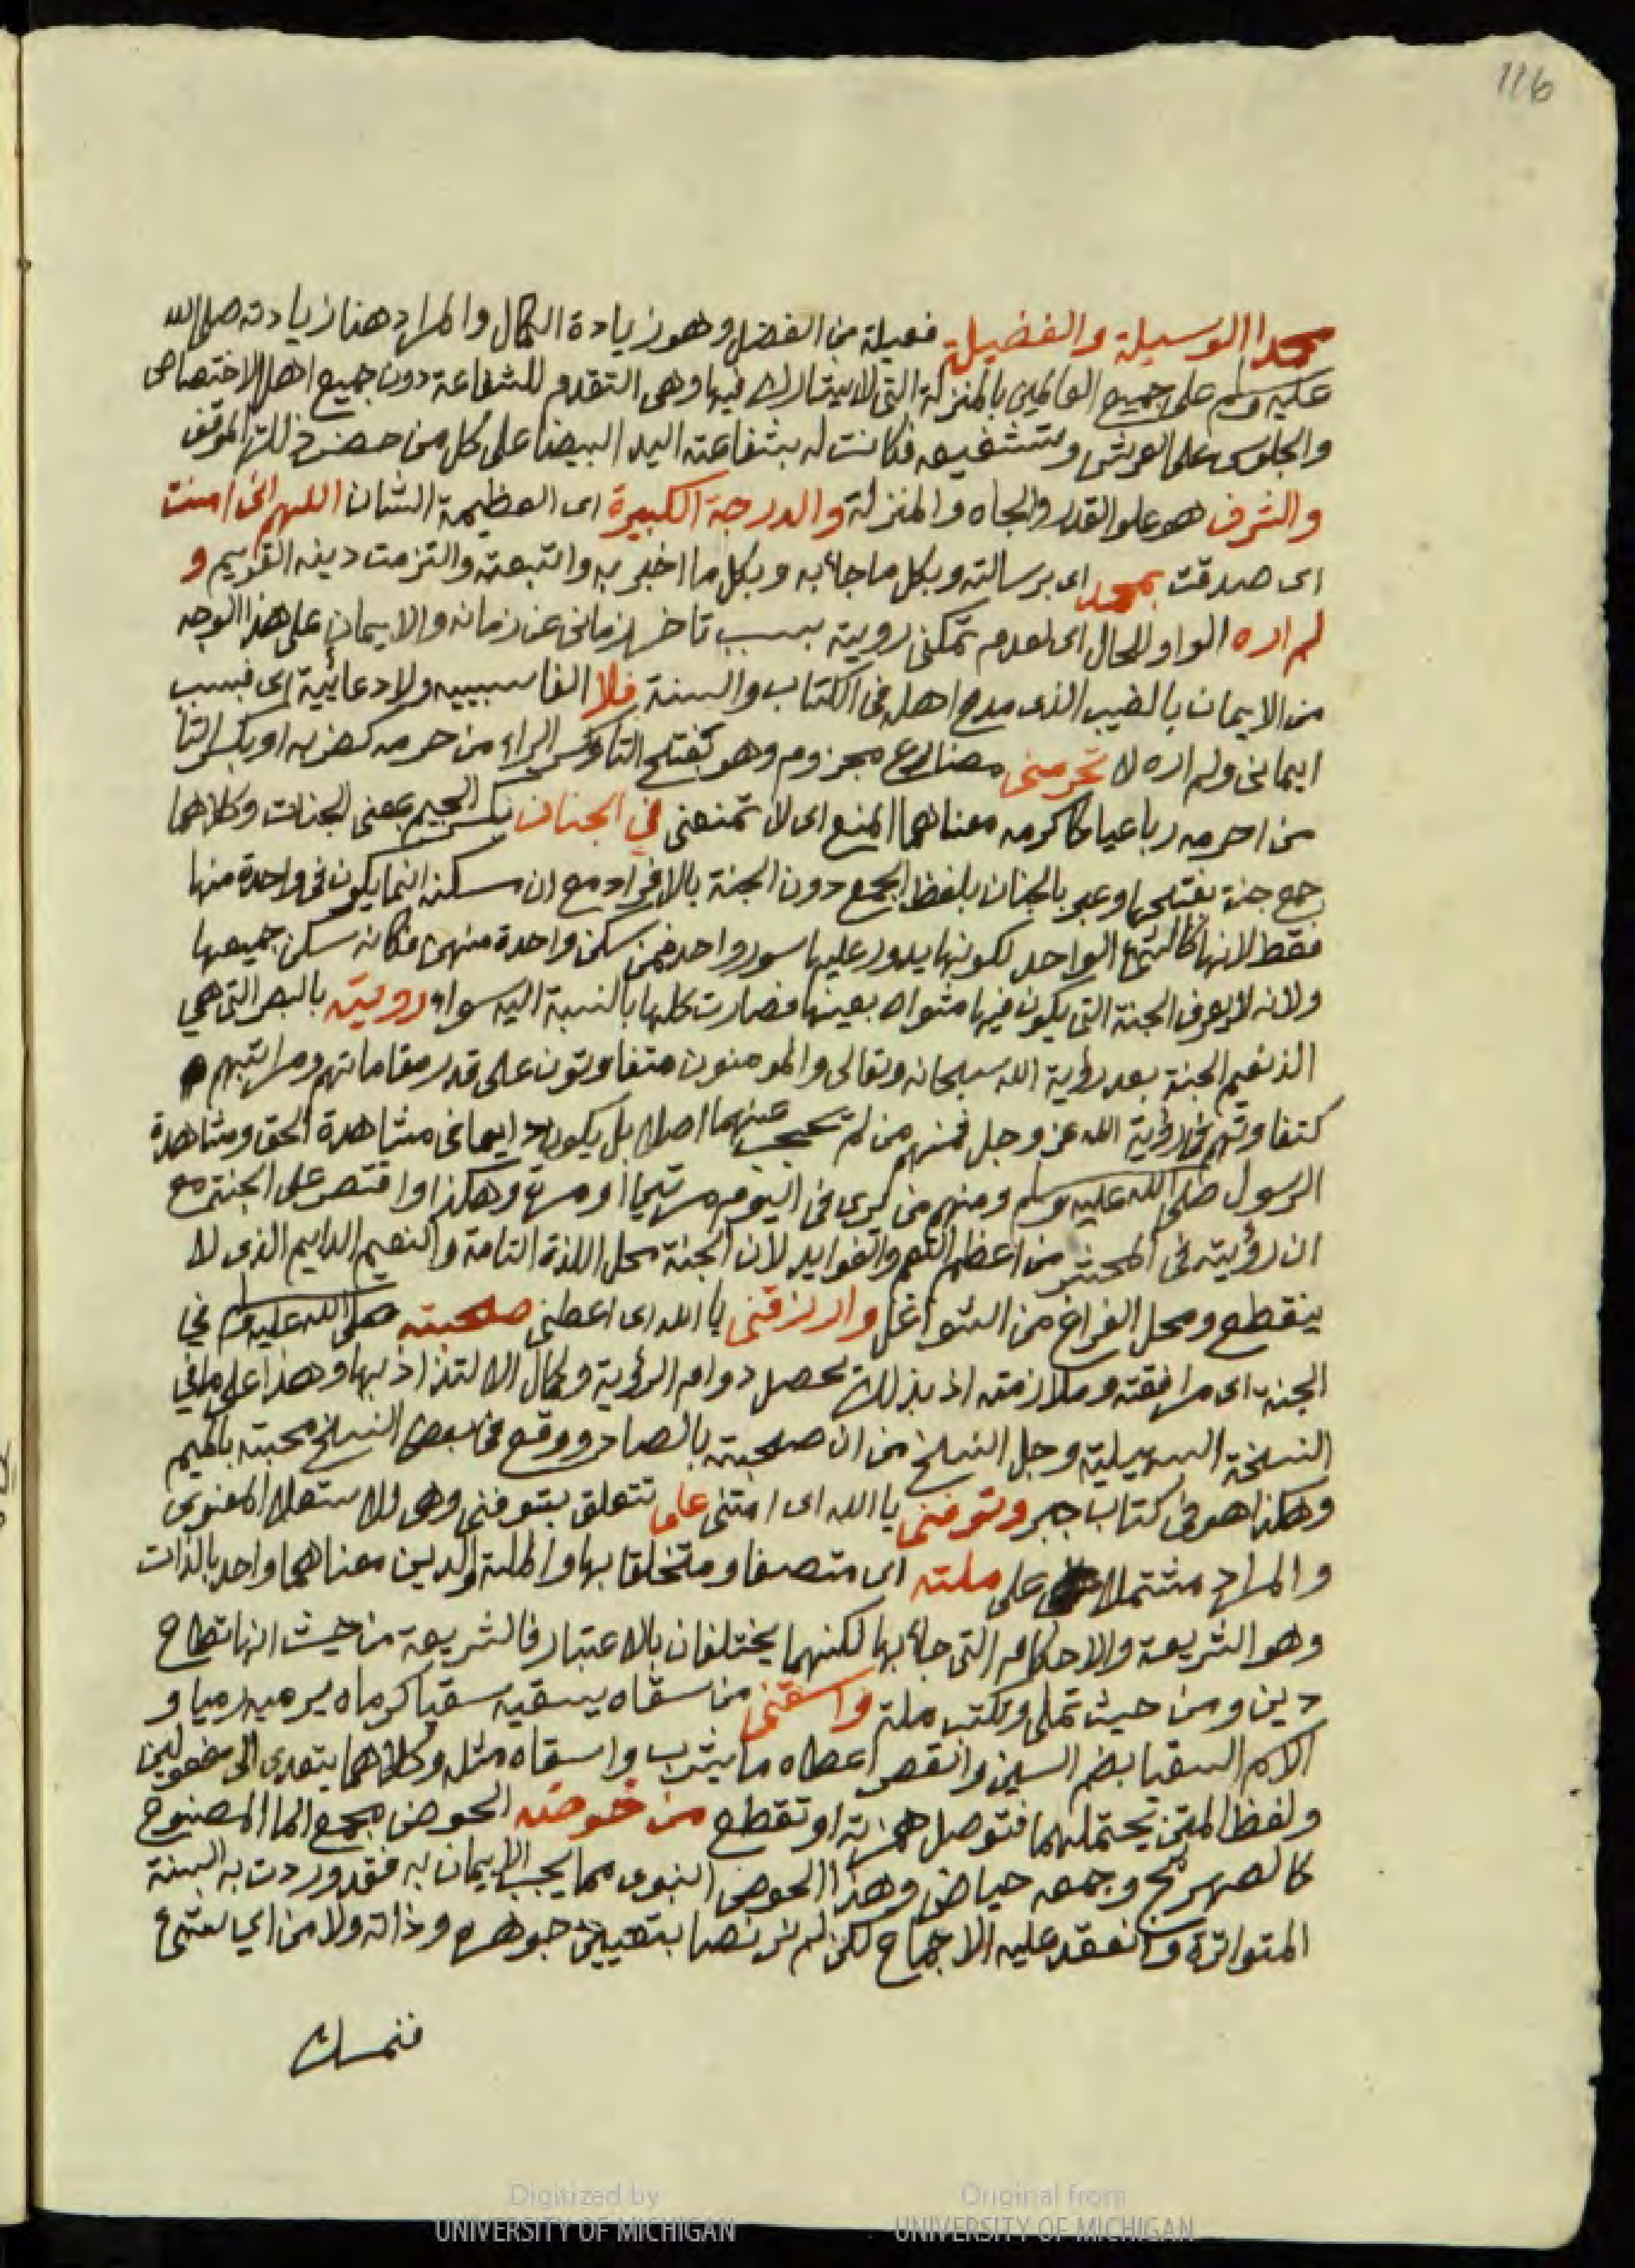 116
محمدا الوسيلة والفضيلة فعيلة من الفضل وهو زيادة الكمال والمراد هنا زيادته صلى الله
عليه وسلم على جميع العالمين بالمنزلة التى لا يشارك فيها وهى التقدم للشفاعة دون جميع اهل الاختصاص
والجلوس على العرش وتشفيعه فكانت له بشفاعته اليد البيضا على كل من حضر ذلك الموقف
والشرف هو علو القدر والجاه والمنزلة والدرجة الكبيرة اى العظيمة الشان اللهم انى امنت
اى صدقت بمحمد اى برسالته وبكل ما جاء به وبكل ما اخبر به واتبعته والتزمت دينه القويم و
لم اره الواو للحال اى لعدم تمكنى رويته بسبب تاخر زمانى عن زمانه والايمان على هذا الوجه
من الايمان بالغيب الذى مدح اهله فى الكتاب والسنة فلا الفا سببيه ولا دعائية اى فبسبب
ايمانى ولم اره لا تحرمنى مضارع مجزوم وهو بفتح التا وكسر الراء من حرمه كضربه او بكسر التا
من احرمه رباعيا كاكرمه معناهما المنع اى لا تمنعنى فى الجنان بكسر الجيم بمعنى الجنات وكلاهما
جمع جنة بفتحها وعبر بالجنان بلفظ الجمع دون الجنة بالافراد مع ان مسكنه انما يكون فى واحدة منها
فقط لانها كالشئ الواحد لكونها يدور عليها سور واحد فمن سكن واحدة منهن فكانه سكن جميعها
ولانه لا يعرف الجنة التى يكون فيها مثواه بعينها فصارت كلها بالنسبة اليه سواء رويته بالبصر التى هي
الذ نعيم الجنة بعد رؤية الله سبحانه وتعالى والمومنون متفاوتون على قدر مقاماتهم ومراتبهم
كتفاوتهم فى رؤية الله عز وجل فمنهم من لم يحجب عنهما اصلا بل يكون دايما فى مشاهدة الحق ومشاهدة
الرسول صلى الله عليه وسلم ومنهم من يرى فى اليوم مرتين او مرة وهكذا واقتصر على الجنة مع
ان رؤيته فى المحشر من اعظم النعم والفوايد لان الجنة محل اللذة التامة والنعيم الدايم الذى لا
ينقطع ومحل الفراغ من الشواغل وارزقنى يا الله اى اعطنى صحبته صلى الله عليه وسلم في
الجنة اى مرافقته وملازمته اذ بذلك تحصل دوام الرؤية وكمال الالتذاذ بها وهذا على ما في
النسخة السهيلية وجل النسخ من ان صحبته بالصاد ووقع فى بعض النسخ محبته بالميم
وهكذا هو فى كتاب جبر وتوفنى يا الله اى امتنى على تتعلق بتوفنى وهى للاستعلا المعنوى
والمراد مشتملا على ملته اى متصفا ومتخلقا بها والملة والدين معناهما واحد بالذات
وهو الشريعة والاحكام التى جاء بها لكنهما يختلفان بالاعتبار فالشريعة من حيث انها تطاع
دين ومن حيث تملى وتكتب ملة واسقنى من سقاه يسقيه سقيا كرماه يرميه رميا و
الاسم السقيا بضم السين والقصر اعطاه ما يشرب واسقاه مثله وكلاهما يتعدى الى مفعولين
ولفظ المتن يحتملهما فتوصل همزته او تقطع من حوضه الحوض مجمع الما المصنوع
كالصهريج وجمعه حياض وهذا الحوض النبوى مما يجب الايمان به فقد وردت به السنة
المتواترة وانعقد عليه الاجماع لكن لم نر نصا بتعيين جوهره وذاته ولا من اى شئ
فنمسك
Digitized by
UNIVERSITY OF MICHIGAN
Original from
UNIVERSITY OF MICHIGAN